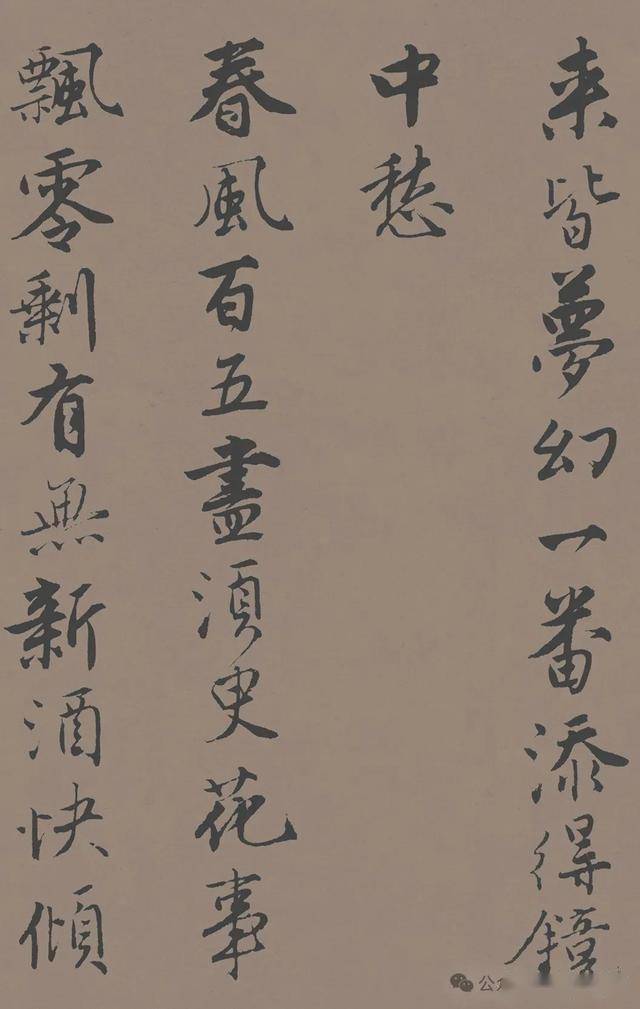 来皆夢幻一番添得鏡
中愁
春風百五盡須臾花事
飄零剩有無新酒快傾
公